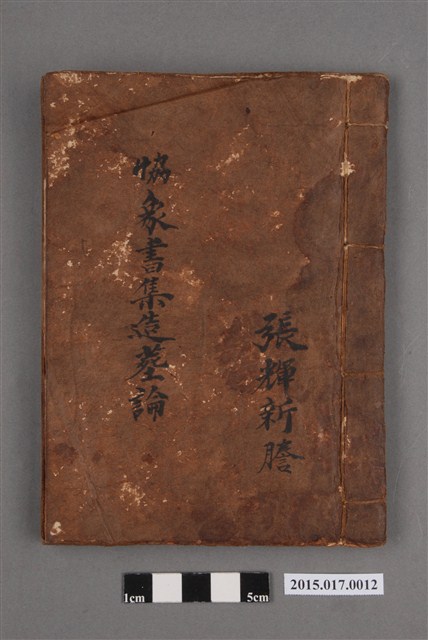 張輝新謄
恊象書集造墓論
1cm
5cm
2015.017.0012